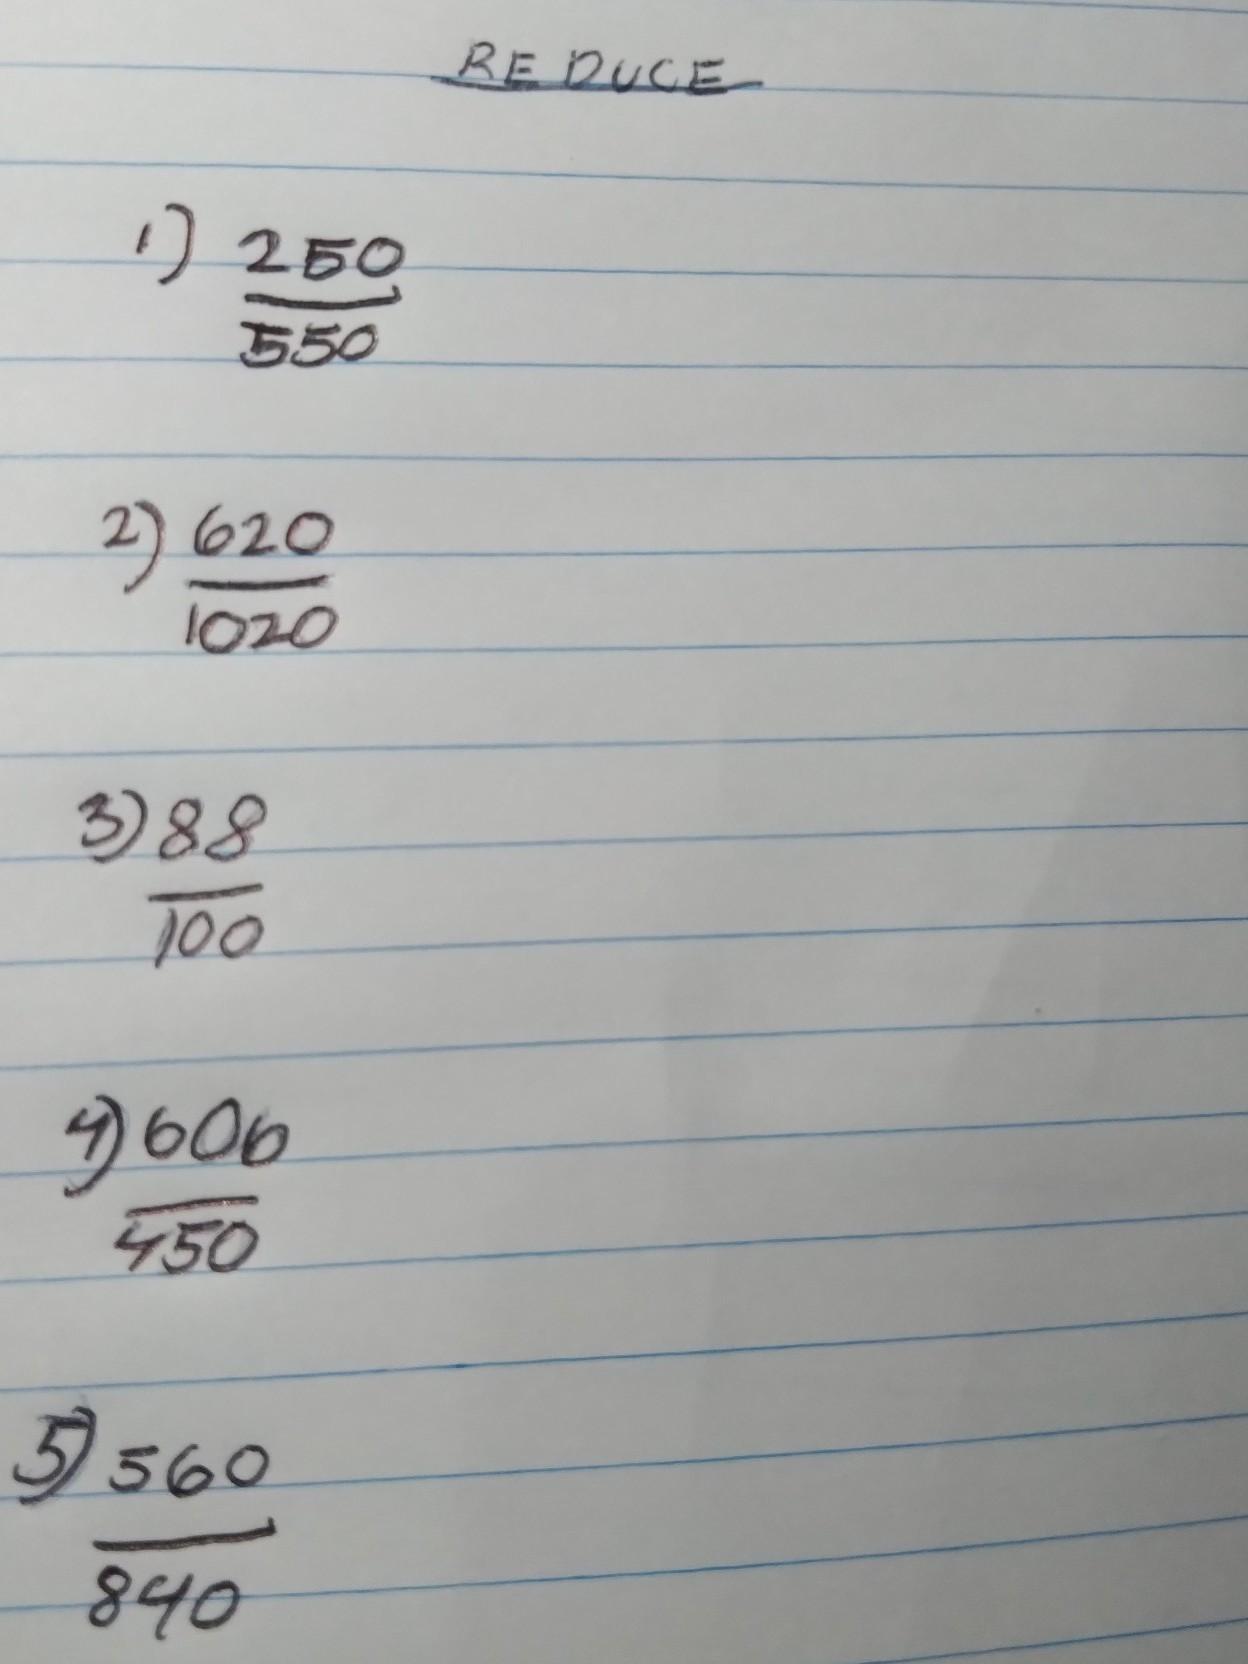 REDUCE
1) 250
550
2) 620
1020
3) 88
100
4) 606
450
5) 560
840